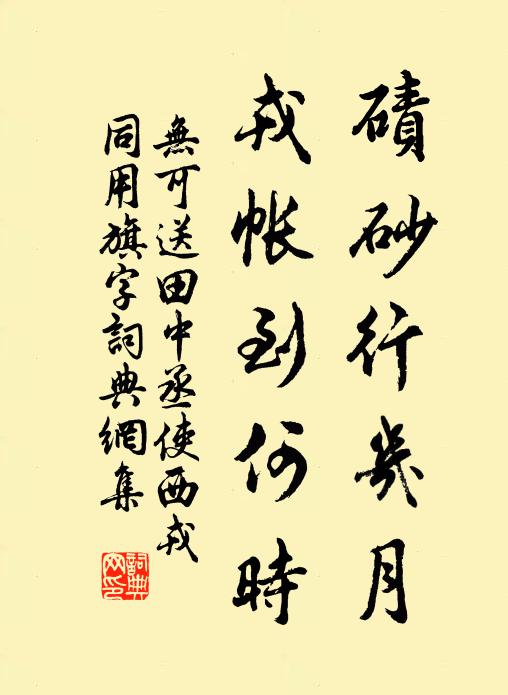 磧砂行幾月
戎帳到何時
無可送田中丞使西戎
同用旗字詞典網集
詞典网印